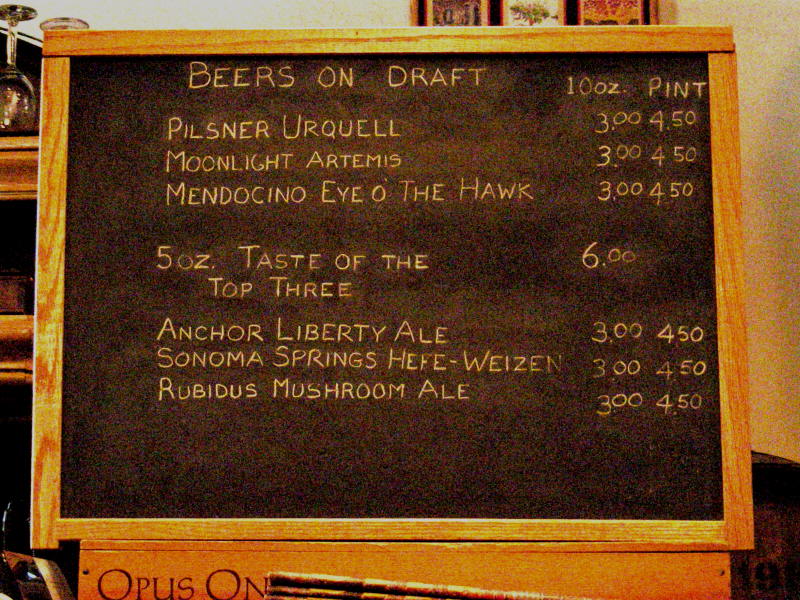 BEERS ON DRAFT 10oz. PINT
PILSNER URQUELL 3.00 4.50
MOONLIGHT ARTEMIS 3.00 4 50
MENDOCINO EYE O' THE HAWK 3.00 4.50
5oz. TASTE OF THE 6.00
TOP THREE
ANCHOR LIBERTY ALE 3.00 450
SONOMA SPRINGS HEFE-WEIZEN 3 00 4.50
RUBIDUS MUSHROOM ALE 300 4.50
OPUS ON